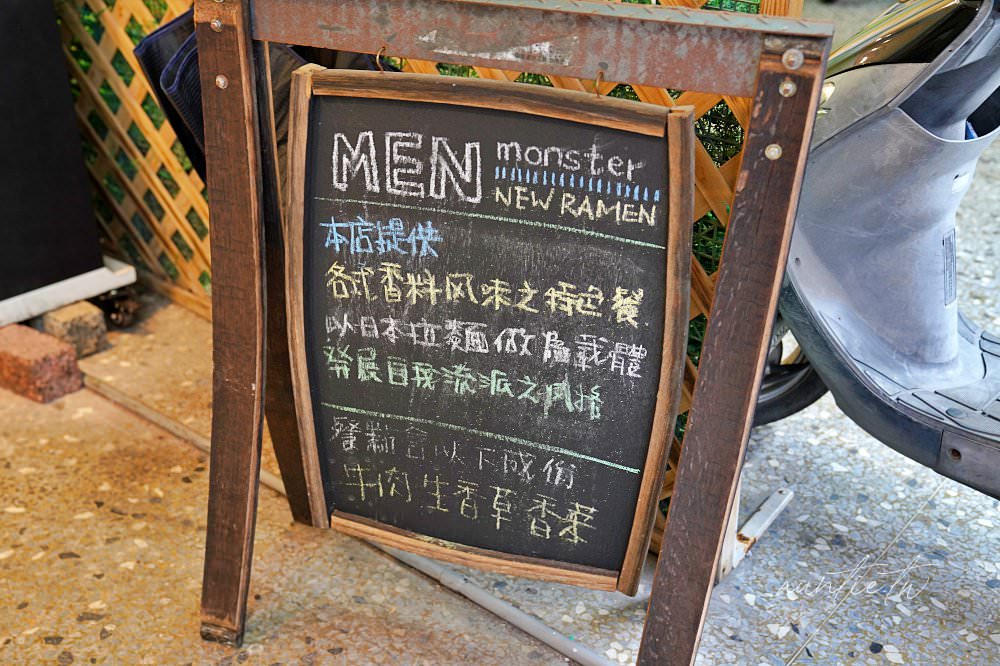 MEN monster
NEW RAMEN
本店提供
各式香料风味之特色餐
以日本拉麵做為載體
發展自我流派之风格
餐點含以下成份
牛肉生香草香菜
nuntie.tw